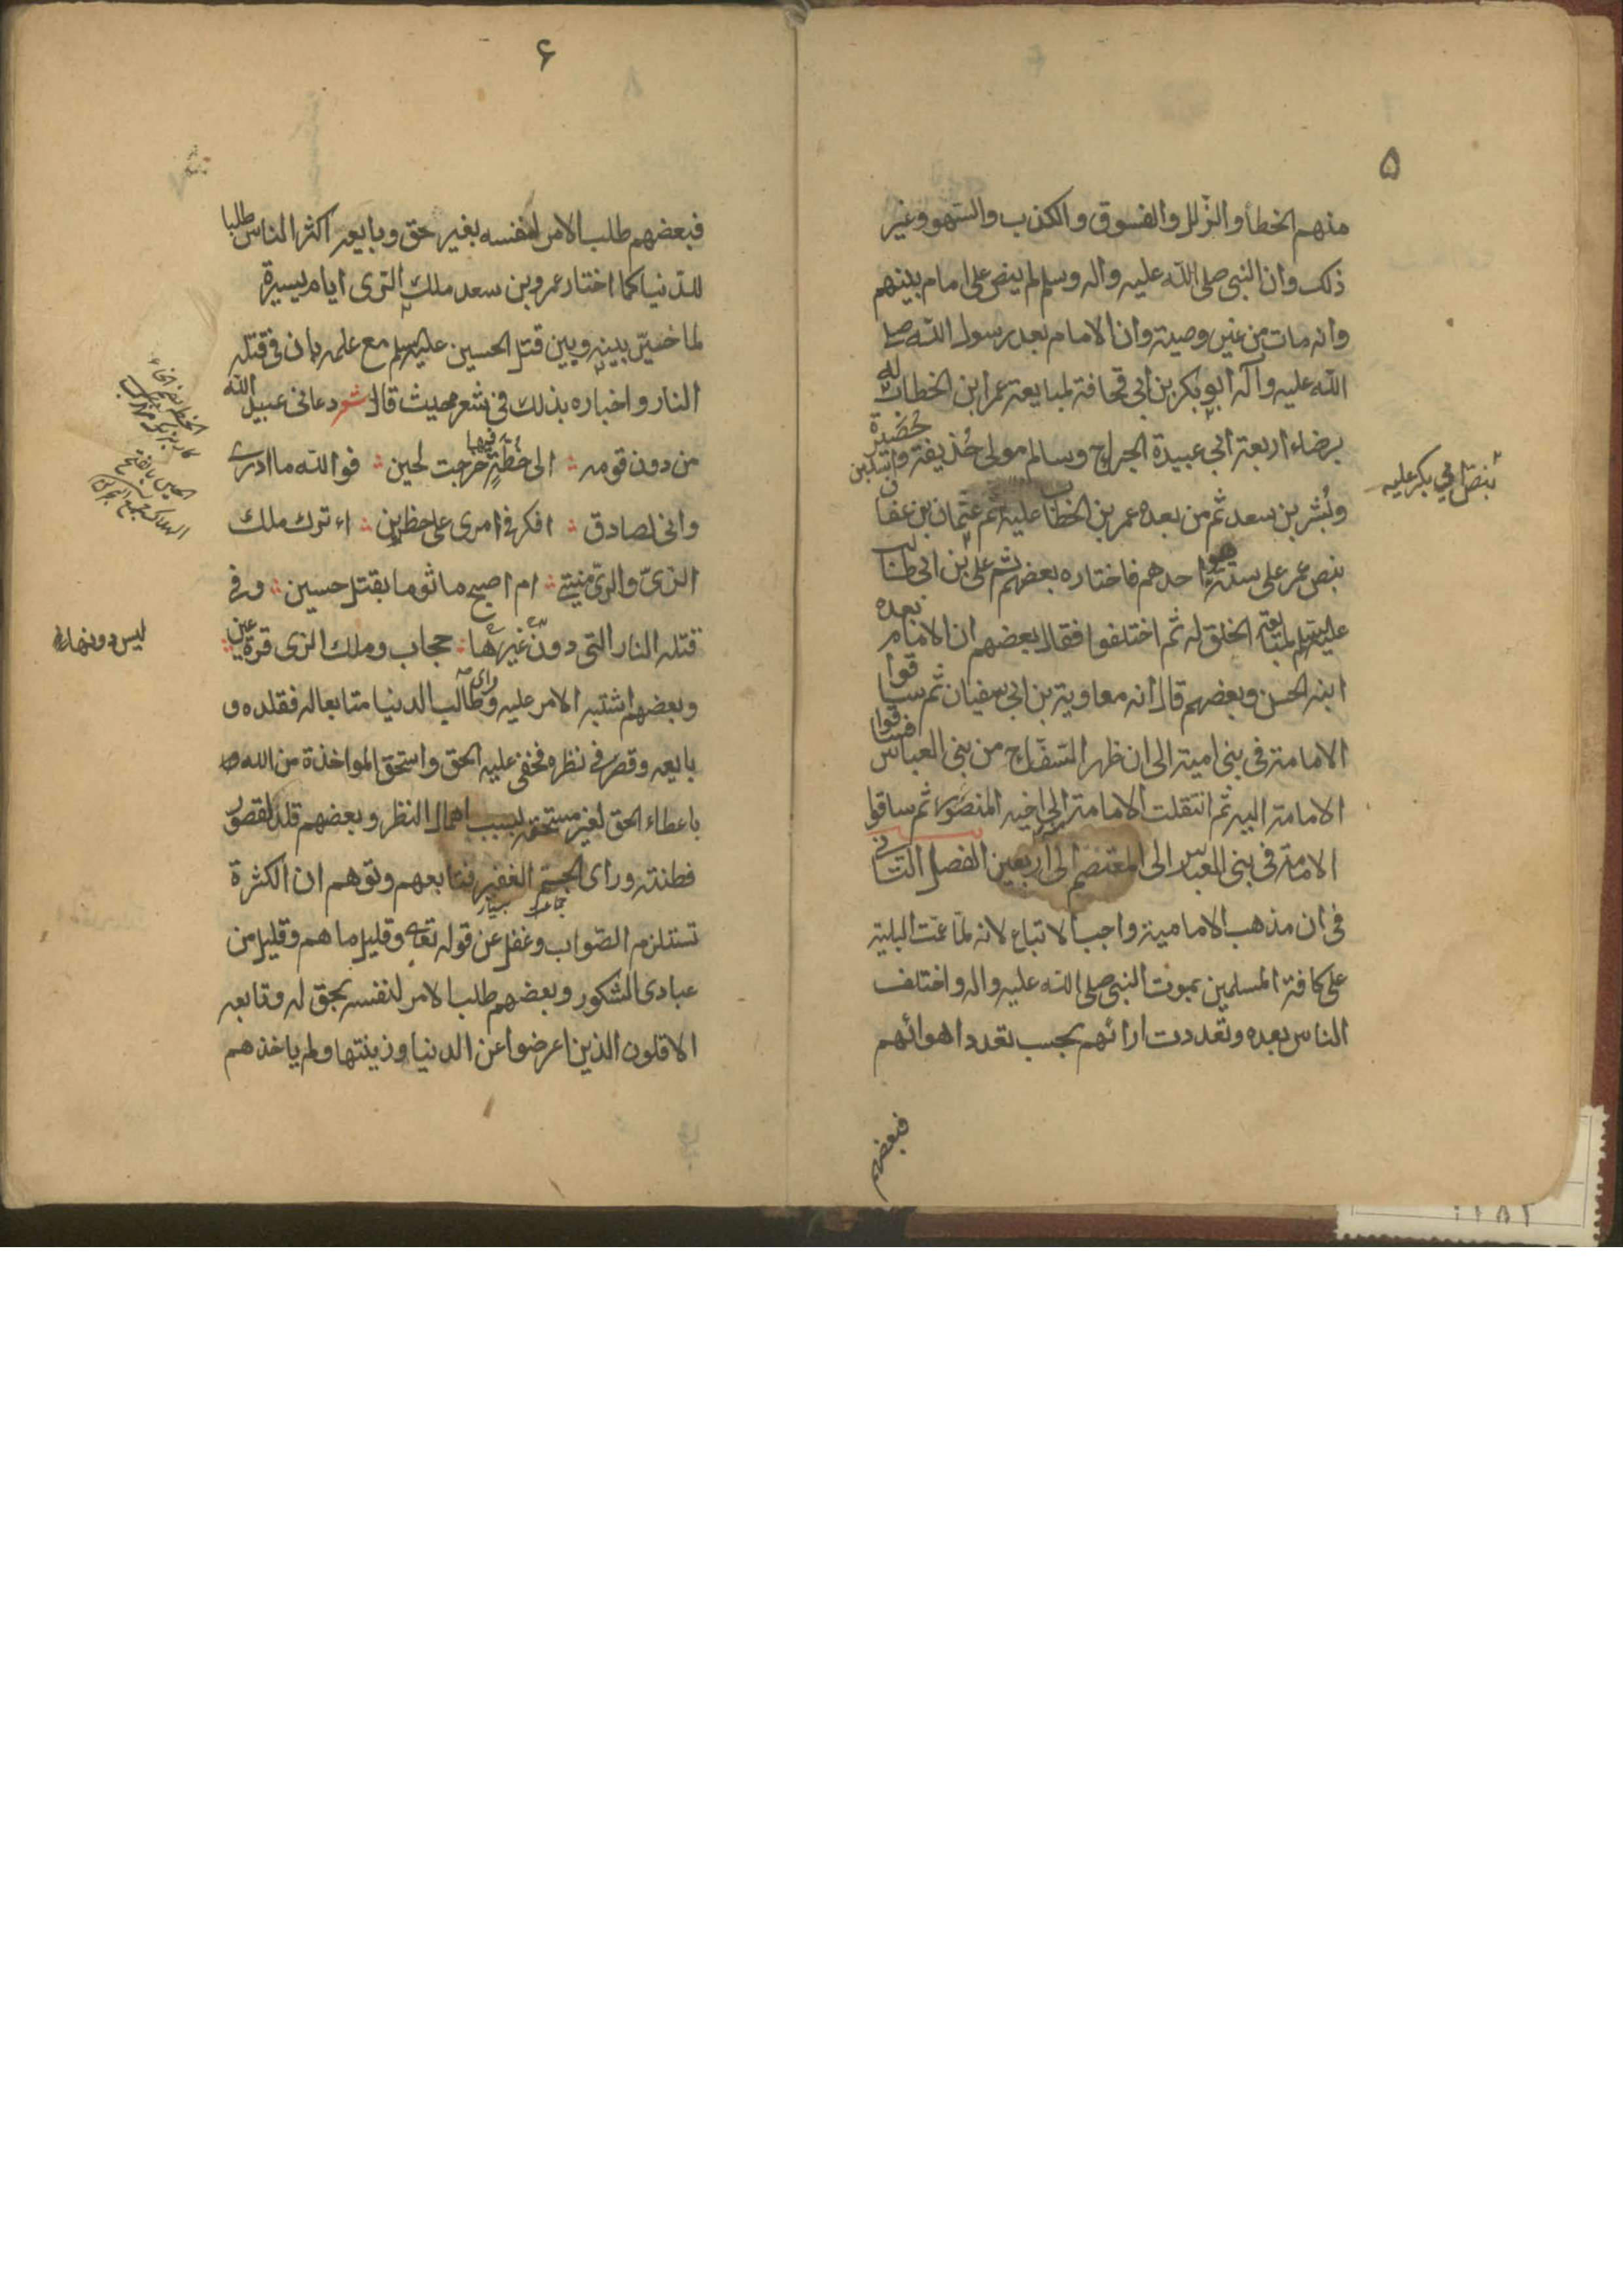 ۵
منهم الخطأ والزلل والفسوق والكذب والسهو وغير
ذلك وان النبى صلى الله عليه واله وسلم لم ينص على امام بينهم
وانه مات من غير وصية وان الامام بعد رسول الله صلى
الله عليه وآله ابو بكر بن ابى قحافة لمبايعة عمر ابن الخطاب له
برضاء اربعة ابى عبيدة الجراح وسالم مولى حذيفة واسيد بن حضيرة
وبشر بن سعد ثم من بعده عمر بن الخطاب عليه ثم عثمان بن عفان
بنص ابي بكر عليه
بنص عمر على ستة هو احدهم فاختاره بعضهم ثم على بن ابى طالب
عليه لمبايعة الخلق له ثم اختلفوا فقال بعضهم ان الامام بعده
ابنه الحسن وبعضهم قال انه معاوية بن ابى سفيان ثم ساقوا
الامامة فى بنى امية الى ان ظهر السفاح من بنى العباس فساقوا
الامامة اليه ثم انتقلت الامامة الى اخيه المنصور ثم ساقوا
الامامة فى بنى العباس الى المعتصم الى اربعين الفصل الثانى
فى ان مذهب الامامية واجب الاتباع لانه لما عمت البلية
على كافة المسلمين بموت النبى صلى الله عليه واله واختلف
الناس بعده وتعددت ارائهم بحسب تعدد اهوائهم
فبعضهم
۶
فبعضهم طلب الامر لنفسه بغير حق وبايعه اكثر الناس طلبا
للدنيا كما اختار عمرو بن سعد ملك الرى ايام يسيرة
لما خير بينه وبين قتل الحسين عليه مع علمه بان فى قتله
النار واخباره بذلك فى شعره حيث قال شعر دعانى عبيد الله
من دون قومه الى خطة فيها خرجت لحين فوالله ما ادرى
وانى لصادق افكر فى امرى على خطرين ءاترك ملك
الرى والرى منيتى ام اصبح ماثوما بقتل حسين وفى
قتله النار التى دون غيرها حجاب وملك الرى قرة عين
ليس دونها
وبعضهم اشتبه الامر عليه وراى طالب الدنيا متابعا له فقلده و
بايعه وقصر فى نظره فخفى عليه الحق واستحق المواخذة من الله
باعطاء الحق لغير مستحقه بسبب اهمال النظر وبعضهم قلد لقصور
فطنته وراى الجم الغفير فتابعهم وتوهم ان الكثرة
تستلزم الصواب وغفل عن قوله تعالى وقليل ما هم وقليل من
عبادى الشكور وبعضهم طلب الامر لنفسه بحق له وتابعه
الاقلون الذين اعرضوا عن الدنيا وزينتها ولم ياخذهم